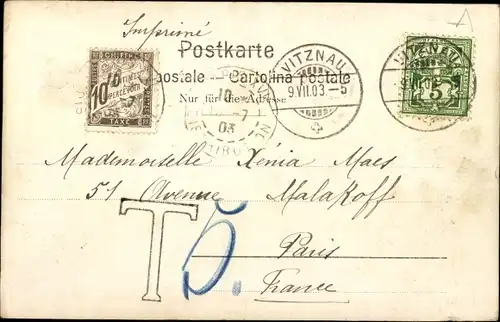 Imprimé
Postkarte
postale — Cartolina postale
Nur für die Adresse
CHIFFRE
10
CENTIMES
A PERCEVOIR
TAXE
10
-7
03
VITZNAU
9.VII.03–5
VITZNAU
5
Mademoiselle Xénia Maes
51 Avenue Malakoff
T 5.
Paris
France